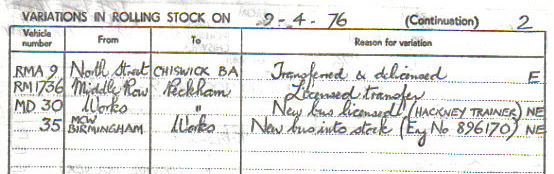 VARIATIONS IN ROLLING STOCK ON 9-4-76 (Continuation) 2
Vehicle number From To Reason for variation
RMA 9 North Street CHISWICK BA Transferred & delicensed E
RM1736 Middle Row Peckham Licensed transfer
MD 30 Works " New bus licensed (HACKNEY TRAINER) NE
35 MCW BIRMINGHAM Works New bus into stock (Eng No 896170) NE